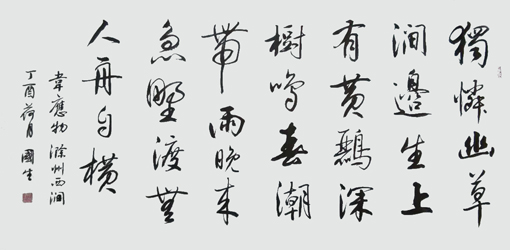 獨憐幽草
澗邊生上
有黄鸝深
樹鳴春潮
帶雨晚来
急野渡無
人舟自横
韋應物滁州西澗
丁酉荷月 國生